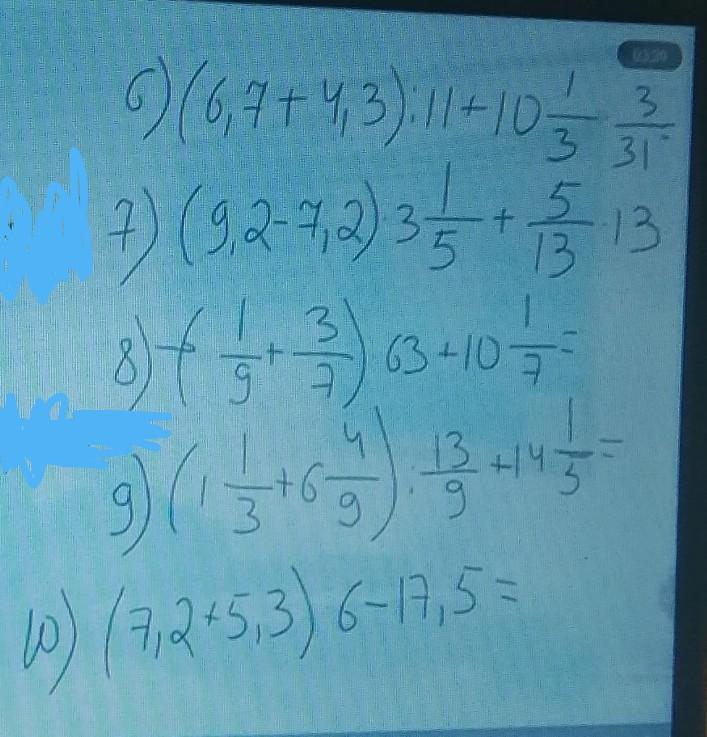 03:20
6) (6,7+4,3):11+10 1/3 · 3/31 =
7) (9,2-7,2)·3 1/5 + 5/13 · 13
8) -(1/9 + 3/7) 63+10 1/7 =
9) (1 1/3 + 6 4/9) : 13/9 + 14 1/5 =
10) (7,2+5,3) 6-17,5=